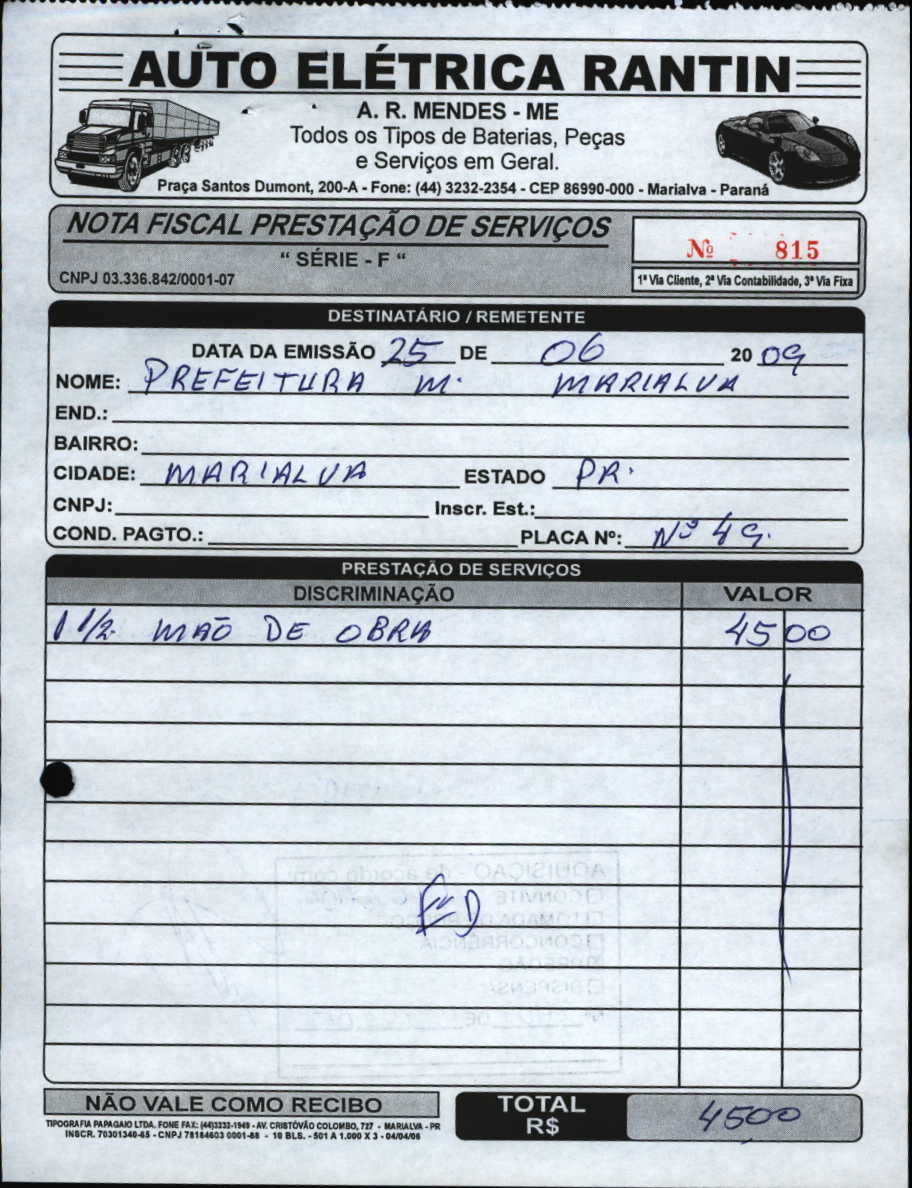 AUTO ELÉTRICA RANTIN
A. R. MENDES - ME
Todos os Tipos de Baterias, Peças
e Serviços em Geral.
Praça Santos Dumont, 200-A - Fone: (44) 3232-2354 - CEP 86990-000 - Marialva - Paraná
NOTA FISCAL PRESTAÇÃO DE SERVIÇOS
" SÉRIE - F "
Nº 815
CNPJ 03.336.842/0001-07
1ª Via Cliente, 2ª Via Contabilidade, 3ª Via Fixa
DESTINATÁRIO / REMETENTE
DATA DA EMISSÃO 25 DE 06 2009
NOME: PREFEITURA M. MARIALVA
END.:
BAIRRO:
CIDADE: MARIALVA ESTADO PR.
CNPJ: Inscr. Est.:
COND. PAGTO.: PLACA Nº: Nº 49.
PRESTAÇÃO DE SERVIÇOS
DISCRIMINAÇÃO VALOR
1 1/2 MÃO DE OBRA 45 00
AQUISIÇÃO - de acordo com:
CONVITE
TOMADA DE
CONCORRÊNCIA
DISPENSA
NÃO VALE COMO RECIBO
TOTAL
R$ 4500
TIPOGRAFIA PAPAGAIO LTDA. FONE FAX: (44)3232-1949 - AV. CRISTÓVÃO COLOMBO, 727 - MARIALVA - PR
INSCR. 70301340-65 - CNPJ 78184603 0001-86 - 10 BLS. - 501 A 1.000 X 3 - 04/04/06